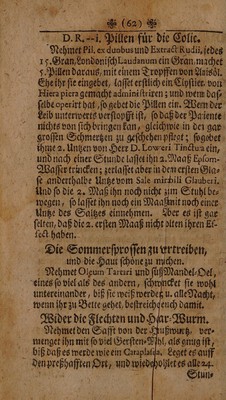 (62)
D. R. --i. Pillen für die Colic.
Nehmet Pil. ex duobus und Extract Rudii, jedes
15. Gran, Londonisch Laudanum ein Gran, machet
5. Pillen daraus, mit einem Tropffen von Anisöl.
Ehe ihr sie eingebet, lasset erstlich ein Clystier von
Hiera picra gemacht administriren; und wem das-
selbe operirt hat, so gebet die Pillen ein. Wem der
Leib unterwerts verstopfft ist, so daß der Patiente
nichts von sich bringen kan, gleichwie in den gar
grossen Schmertzen zu geschehen pfleget; so gebet
ihme 2. Untzen von Herr D. Loweri Tinctura ein,
und nach einer Stunde lasset ihn 2. Maaß Epsom-
Wasser trincken; zerlasset aber in dem ersten Gla-
se anderthalbe Untze von Sale mirabili Glauberi.
Und so die 2. Maß ihn noch nicht zum Stuhl be-
wegen, so lasset ihn noch ein Maaß mit noch einer
Untze des Saltzes einnehmen. Aber es ist gar
selten, daß die 2. ersten Maaß nicht alten ihren Ef-
fect haben.
Die Sommersprossen zu vertreiben,
und die Haut schöne zu machen.
Nehmet Oleum Tartari und süß Mandel-Oel,
eines so viel als des andern, schwencket sie wohl
untereinander, biß sie weiß werden; u. alle Nacht,
wenn ihr zu Bette gehet, bestreichet euch damit.
Wider die Flechten und Haar-Wurm.
Nehmet den Safft von der Haußwurtz, ver-
menget ihn mit so viel Gersten-Mehl, als gnug ist,
biß daß es werde wie ein Cataplasma. Leget es auff
den preßhafften Ort, und wiederholet es alle 24.
Stun-